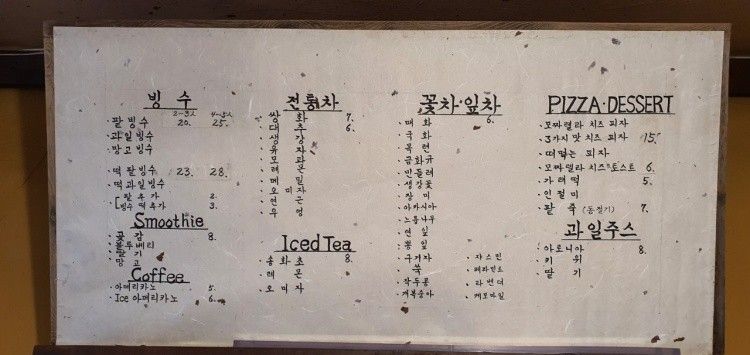 빙수
2-3人 4-5人
· 팥빙수 20. 25.
· 과일빙수
· 망고빙수
· 떡팥빙수 23. 28.
· 떡과일빙수
팥추가 2.
빙수떡추가 3.
Smoothie
· 곶감 8.
· 블루베리
· 딸기
· 망고
Coffee
· 아메리카노 5.
· Ice 아메리카노 6.
전통차
· 쌍화 7.
· 대추 6.
· 생강
· 유자
· 모과
· 레몬
· 메밀
· 오미자
· 연근
· 우엉
Iced Tea
· 송화초 8.
· 레몬
· 오미자
꽃차·잎차
· 매화 6.
· 국화
· 목련
· 금화규
· 민들레
· 생강꽃
· 장미
· 아카시아
· 느릅나무
· 연잎
· 뽕잎
· 구기자
· 쑥
· 작두콩
· 개복숭아
· 쟈스민
· 페퍼민트
· 라벤더
· 케모마일
PIZZA·DESSERT
· 모짜렐라 치즈 피자
· 3가지맛 치즈 피자 15.
· 떠먹는 피자
· 모짜렐라 치즈토스트 6.
· 가래떡 5.
· 인절미
· 팥죽 (동절기) 7.
과일주스
· 아로니아 8.
· 키위
· 딸기